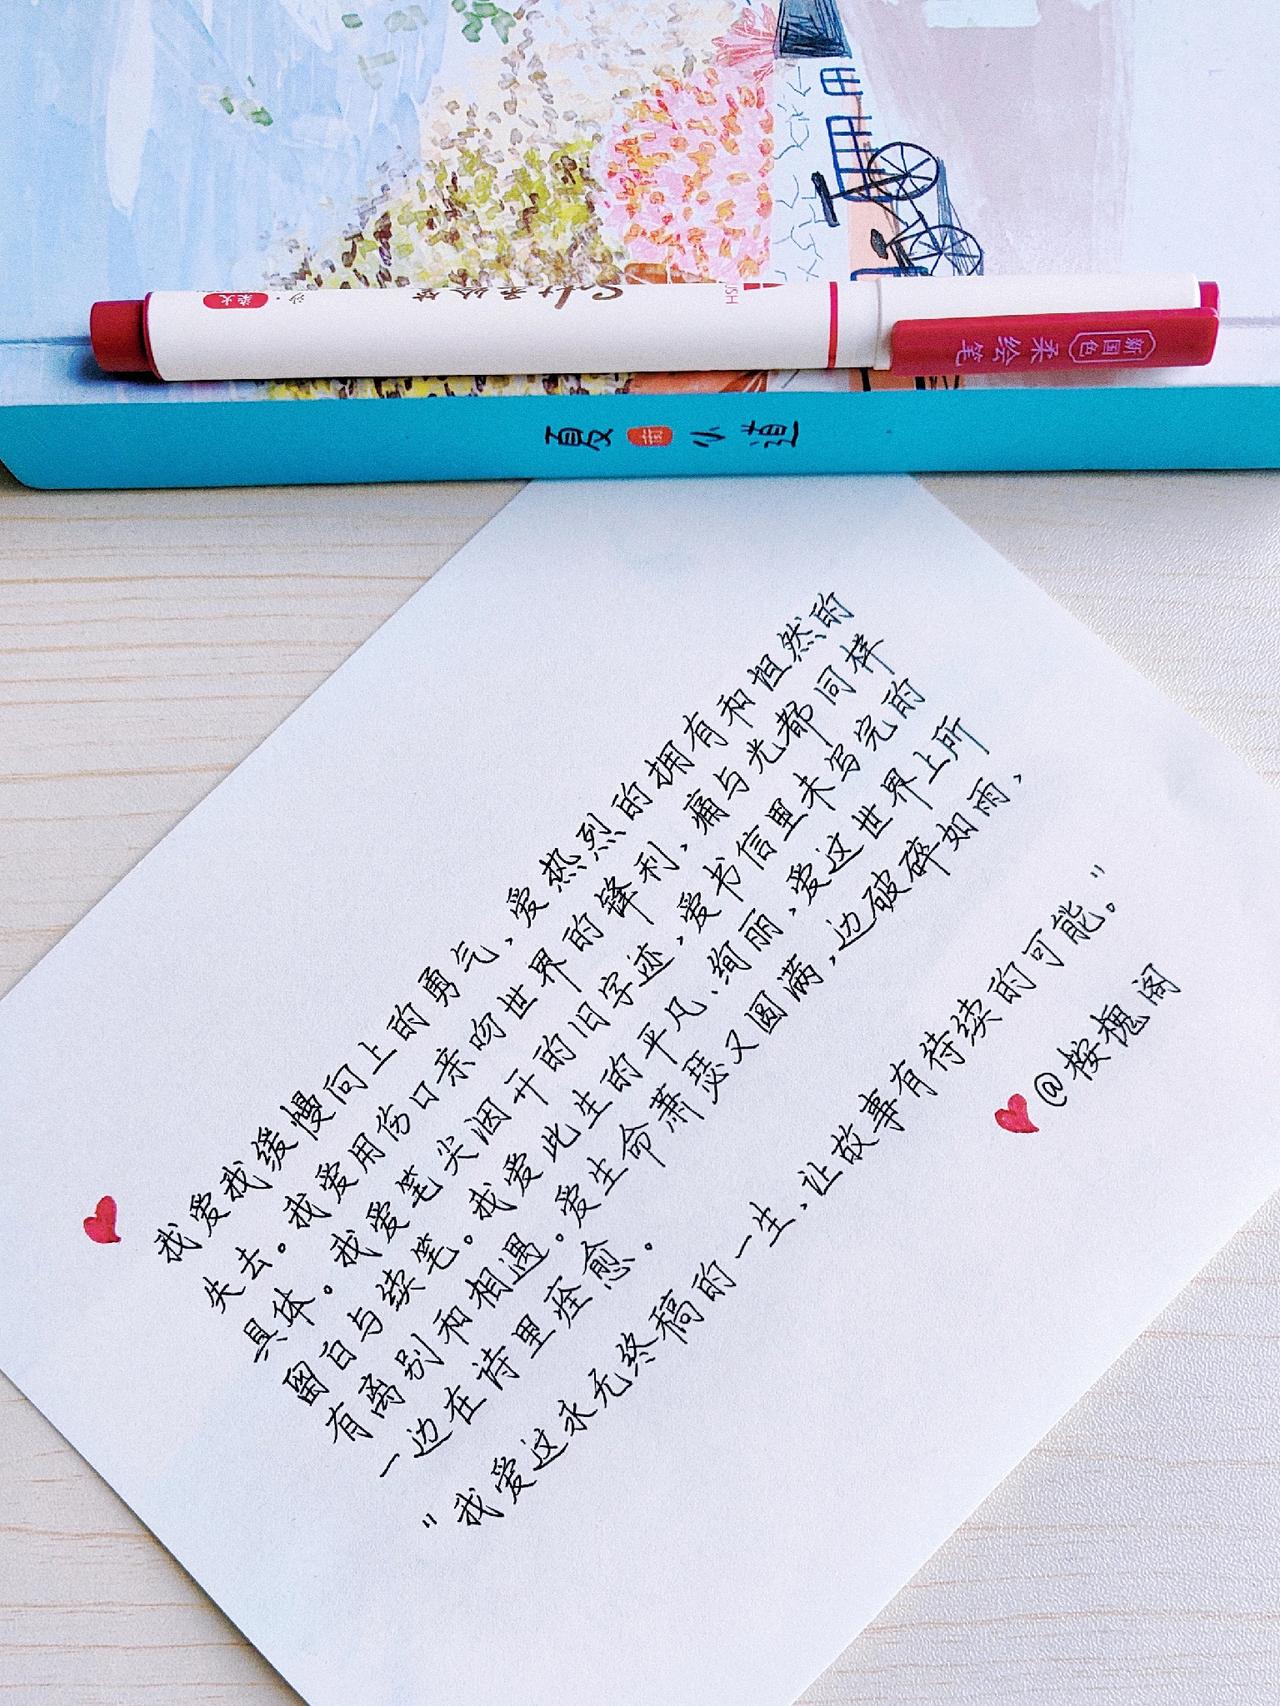 染火
新国色
柔绘笔
夏 小道
我爱我缓慢向上的勇气,爱热烈的拥有和坦然的
失去。我爱用伤口亲吻世界的锋利,痛与光都同样
具体。我爱笔尖洇开的旧字迹,爱书信里未写完的
留白与续笔。我爱此生的平凡、绚丽,爱这世界上所
有离别和相遇。爱生命萧瑟又圆满,边破碎如雨,
一边在诗里痊愈。
"我爱这永无终稿的一生,让故事有待续的可能。"
@桉槐阁